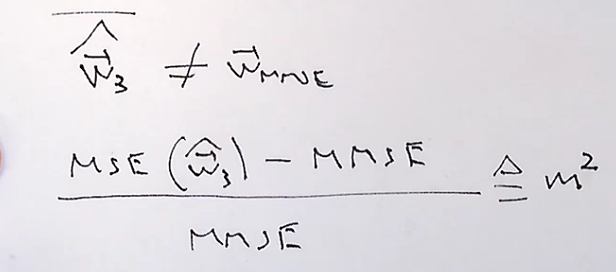 $\hat{\vec{w}}_3 \neq \vec{w}_{MMSE}$
$\frac{MSE(\hat{\vec{w}}_3) - MMSE}{MMSE} \triangleq m^2$